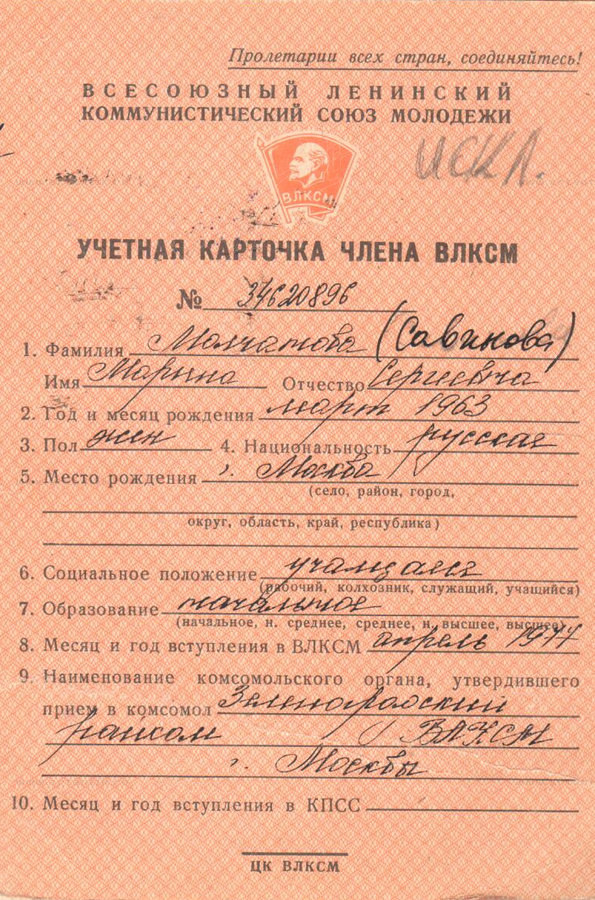 Пролетарии всех стран, соединяйтесь!
ВСЕСОЮЗНЫЙ ЛЕНИНСКИЙ
КОММУНИСТИЧЕСКИЙ СОЮЗ МОЛОДЕЖИ
ИСКЛ.
ВЛКСМ
УЧЕТНАЯ КАРТОЧКА ЧЛЕНА ВЛКСМ
№ 34620896
1. Фамилия Молчанова (Савинова)
Имя Марина Отчество Сергеевна
2. Год и месяц рождения март 1963
3. Пол жен 4. Национальность русская
5. Место рождения г. Москва
(село, район, город,
округ, область, край, республика)
6. Социальное положение учащаяся
(рабочий, колхозник, служащий, учащийся)
7. Образование начальное
(начальное, н. среднее, среднее, н. высшее, высшее)
8. Месяц и год вступления в ВЛКСМ апрель 1977
9. Наименование комсомольского органа, утвердившего
прием в комсомол Зеленоградский
райком ВЛКСМ
г. Москвы
10. Месяц и год вступления в КПСС
ЦК ВЛКСМ